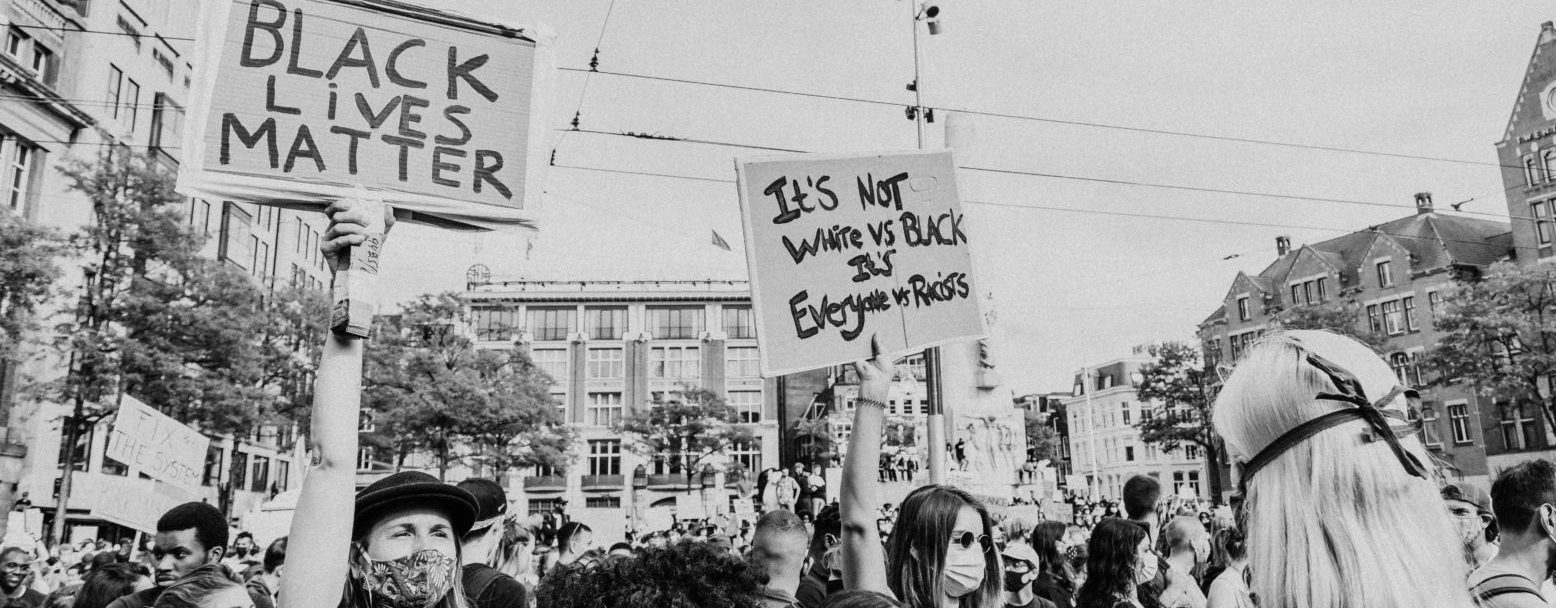 BLACK
LiVES
MATTER
It's NOT
WHiTe VS BLACK
It's
Everyone vs Racists
FIX
THE SYSTEM